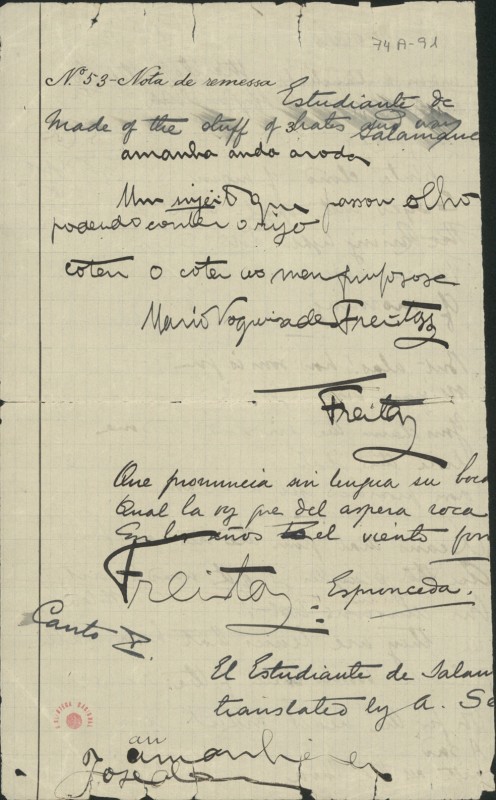 74A-91
Nº 53-Nota de remessa
Estudiante de
Made of the stuff of
Salamanc
amanha anda a roda
Um sujeito que passou olho
podendo conter o rijo
o meu
Mario Nogueira de Freitas
Freitas
Que pronuncia sin lengua su boca
Qual la voz que del aspera roca
En los años el viento for
Freitas
Espronceda.
Canto I.
El Estudiante de Salam
translated by A. Se
an
amanhe
José